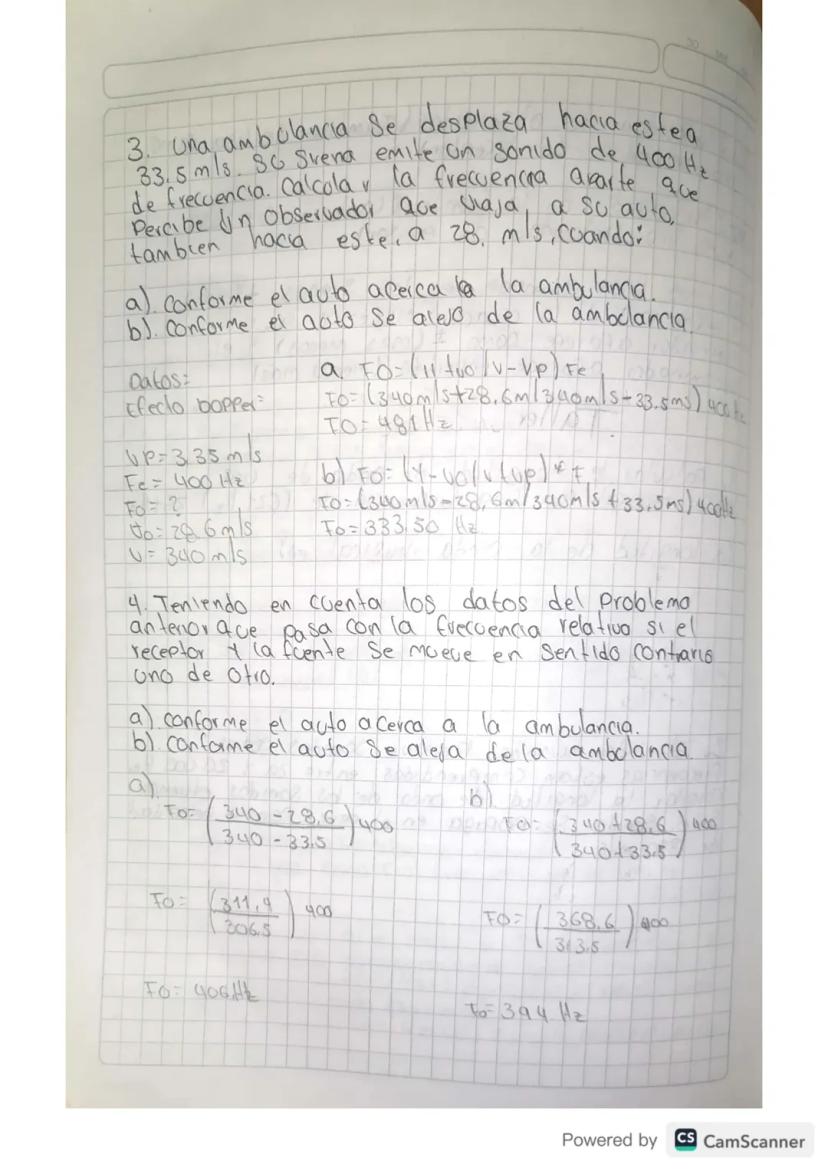 3. Una ambulancia Se desplaza hacia este a
33.5 m/s. SU Sirena emite un sonido de 400 Hz
de frecuencia. Calcular la frecuencia aparte que
Percibe Un observador que viaja, a su auto,
tambien hacia este, a 28, m/s, cuando:
a). conforme el auto acerca la ambulancia.
b). conforme el auto Se alejo de la ambulancia
Datos:
Efecto Dopper:
VP= 3.35 m/s
Fe = 400 Hz
Fo = ?
Vo= 28.6 m/s
V= 340 m/s
a. FO= (V+vo/v-Vp) Fe
FO= (340m/s+28,6m/340m/s-33.5ms) 400Hz
FO= 481Hz
b) FO= (V-vo/v+vp)* F
FO= (340m/s-28,6m/340m/s+33,5ms) 400Hz
Fo=333,50 Hz
4. Teniendo en cuenta los datos del Problema
anterior que pasa con la frecuencia relativa si el
receptor y la fuente Se mueve en Sentido contrario
uno de otro.
a). conforme el auto acerca a la ambulancia.
b). conforme el auto Se aleja de la ambulancia
a).
FO= (340 - 28,6 / 340 - 33.5) 400
FO= (311,4 / 306.5) 400
FO= 406Hz
b).
FO= (340+28,6 / 340+33.5) 400
FO= (368,6 / 313,5) 400
Fo= 394 Hz
Powered by CS CamScanner